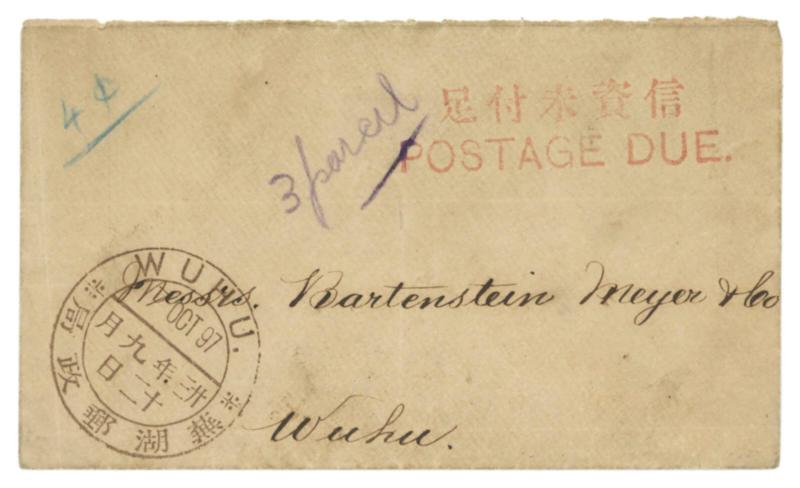 4¢
3 parcel
信資未付足
POSTAGE DUE.
WUHU.
OCT 97
廿三年九月
二十二日
蕪湖郵政局
Messrs. Bartenstein Meyer & Co
Wuhu.